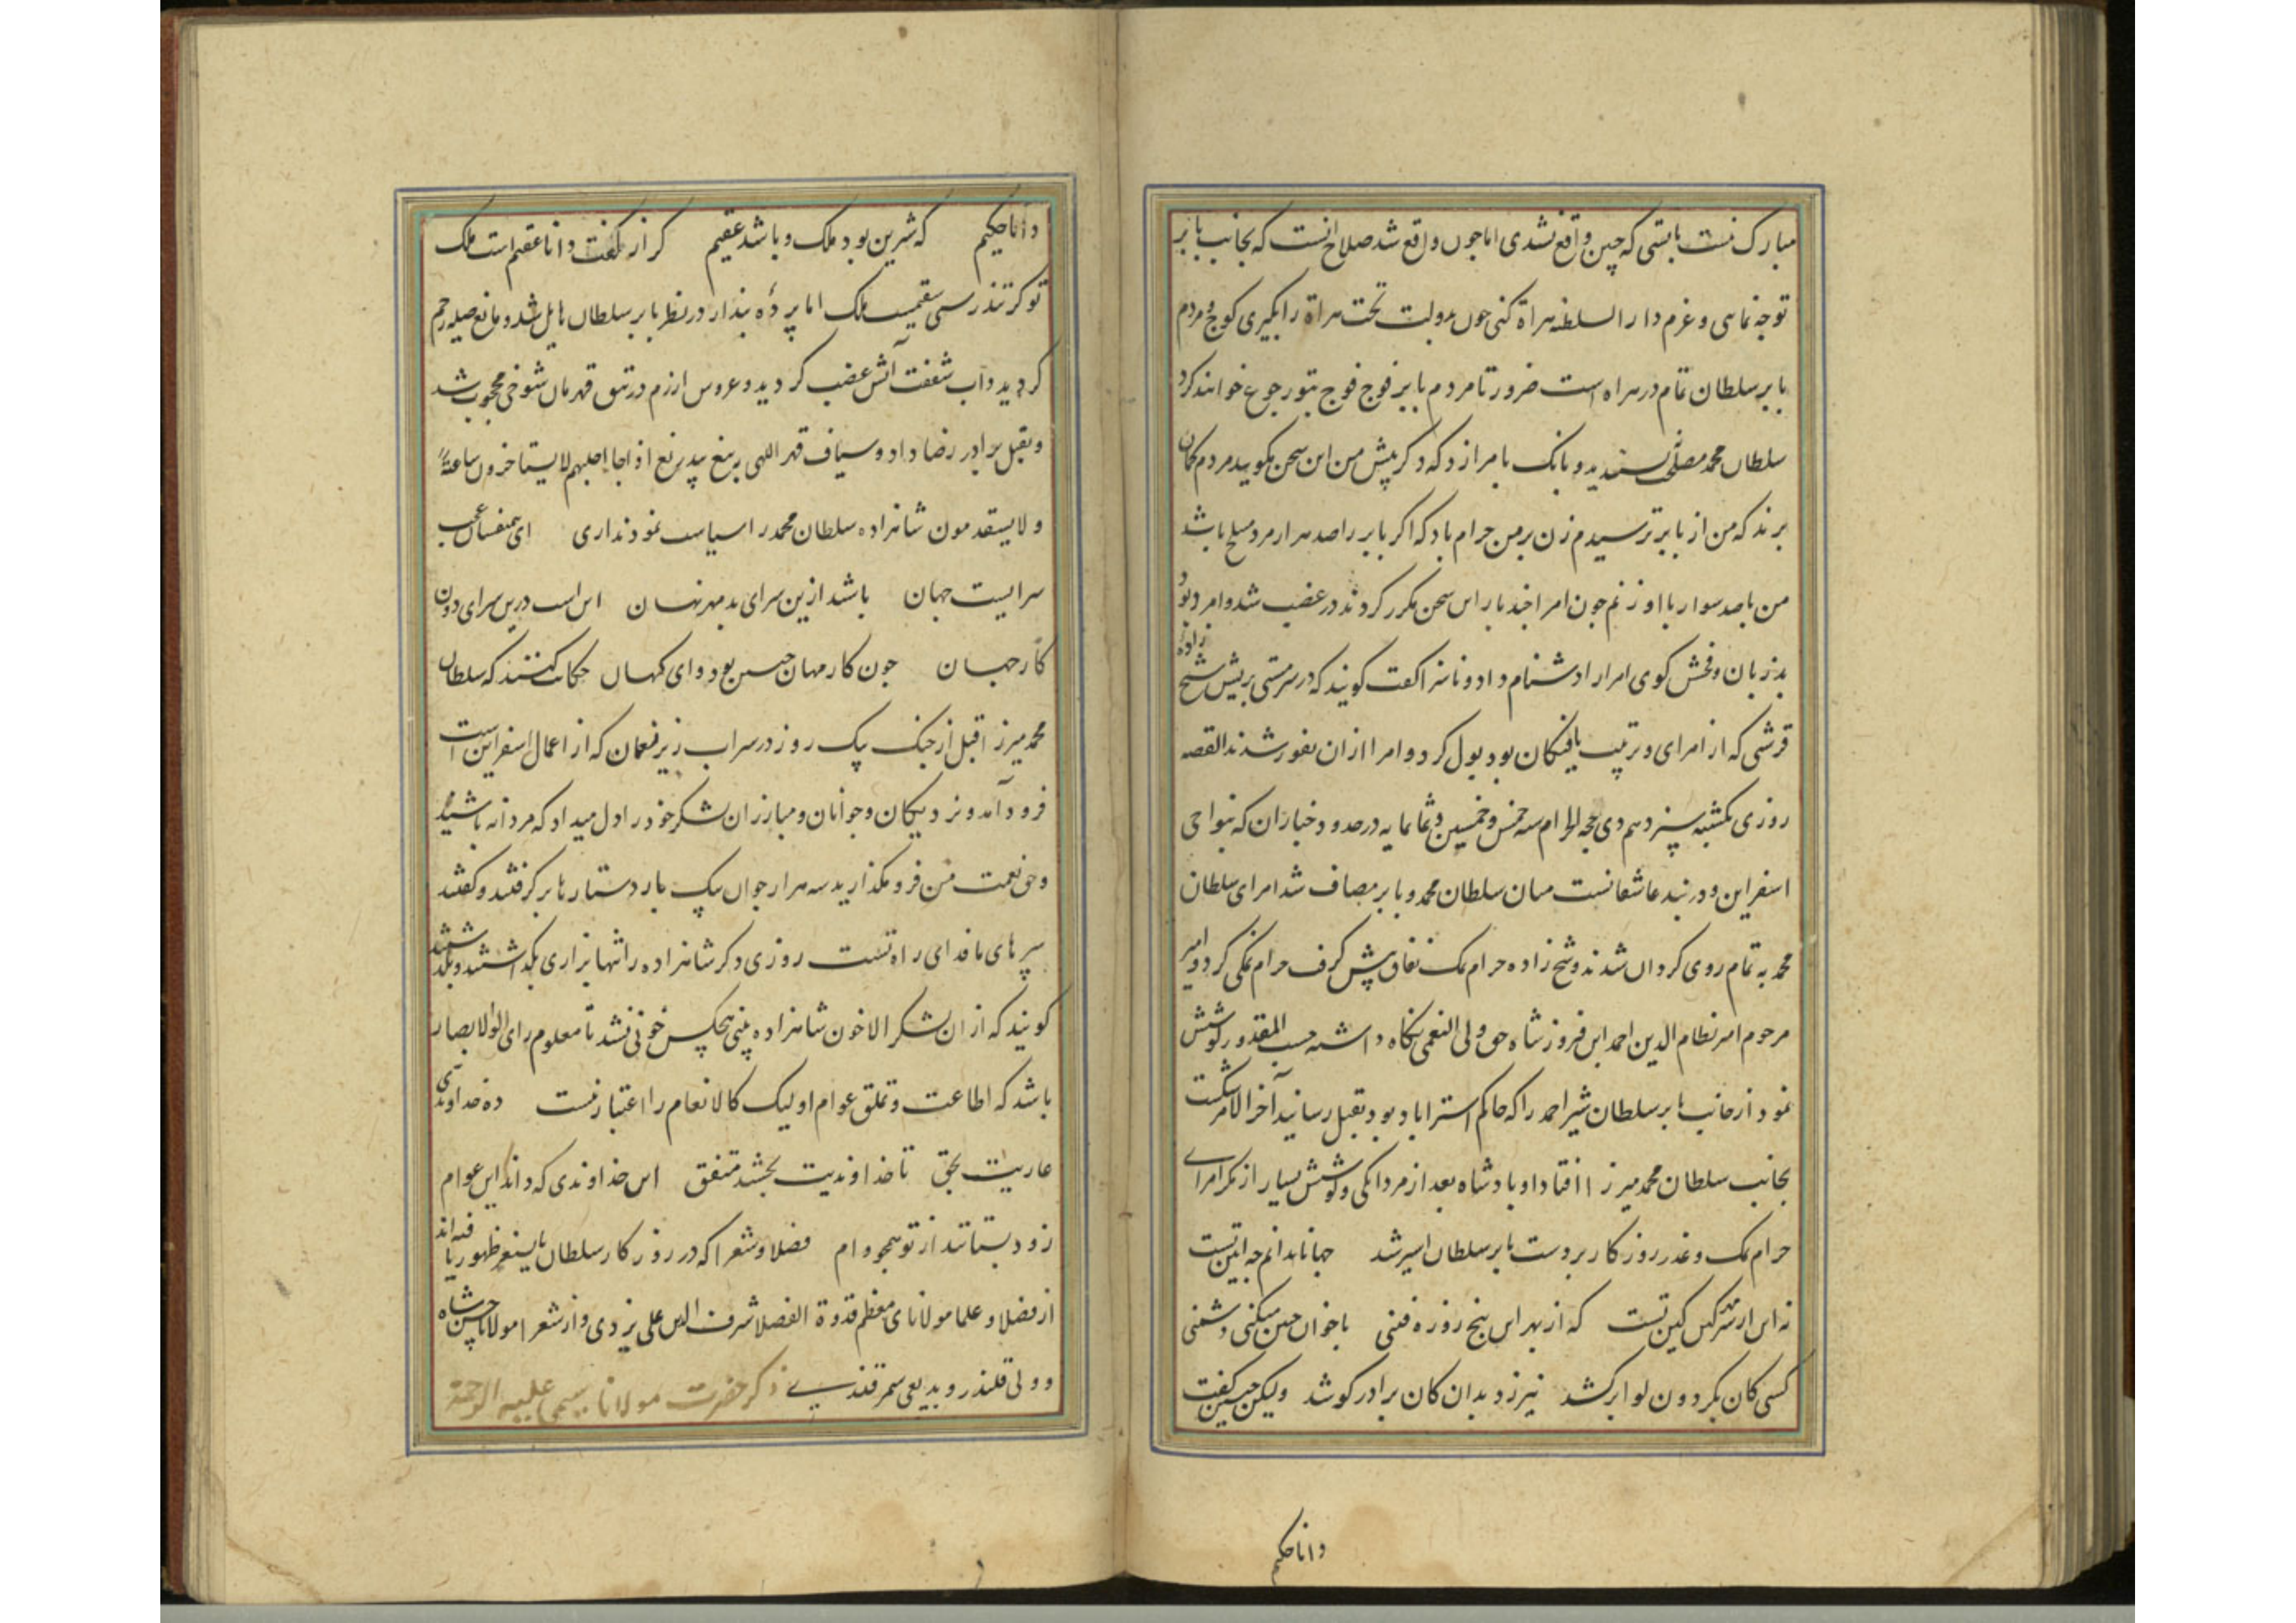 مبارک نیست بایستی که چنین واقع نشدی اما چون واقع شد صلاح انست که بجانب بابر
توجه نمایی و عزم دار السلطنه هراة کنی چون بدولت تخت هراة را بگیری کوچ و مردم
بابر سلطان تمام در هراه است ضرورتا مردم بابر فوج فوج بتو رجوع خواهند کرد
سلطان محمد مصلحت نپسندید و بانک بامرا زد که دکر پیش من این سخن مکویید مردم کمان
برند که من از بابر ترسیدم زن بر من حرام باد که اکر بابر را صد هزار مرد مسلح باشد
من با صد سوار با او زنم چون امرا چند بار این سخن مکرر کردند در غضب شد و امرد بود و
بد زبان و فحش کوی امرا را دشنام داد و ناسزا کفت کویند که در سر مستی بریش شیخ زاده
قرشی که از امرای و تربیت یافتکان بود بول کرد و امرا ازان نفور شدند القصه
روزی یکشنبه سیزدهم ذی حجه الحرام سنه خمس و خمسین و ثمانمایه در حدود خبازان که بنواحی
اسفراین و در بند عاشقانست میان سلطان محمد و بابر مصاف شد امرای سلطان
محمد به تمام روی کردان شدند و شیخ زاده حرام نمک نفاق پیش کرفت حرام نمکی کرد و امیر
مرحوم امیر نظام الدین احمد ابن فیروز شاه حق ولی النعمی نکاه داشته حسب المقدور کوشش
نمود از جانب بابر سلطان شیر احمد را که حاکم استراباد بود بقتل رسانید آخر الامر شکست
بجانب سلطان محمد میرزا افتاد او پادشاه بعد از مردانکی و کوشش بسیار از مکر امرای
حرام نمک و غدر روزکار بر دست بابر سلطان اسیر شد جهانا ندانم چه ایین تست
که از بهر این پنج روزه فنی باخوان چنین میکنی دشمنی
کسی کان بکردون لوا برکشد نیرزد بدان کان برادر کشد ولیکن چنین کفت
دانا حکیم
دانا حکیم که شیرین بود ملک و باشد عقیم کر از کفت دانا عقیم است ملک
تو کر تندرستی سقیمست ملک اما پردۀ پندار در نظر بابر سلطان هایل شد و مانع صیله رحم
کردید و آب شفقت آتش غضب کردید و عروس ازرم در تتق قهرمان شوخی محجوب شد
و بقتل برادر رضا داد و سیاف قهر اللهی به تیغ بیدریغ اذا جا اجلهم لا یستاخرون ساعة
و لا یستقدمون شاهزاده سلطان محمد را سیاست نمودند اری ای همنفسان عجب
سراییست جهان باشد ازین سرای بد مهر نهان این است درین سرای دون
کار جهان چون کار مهان چنین بود وای کهان حکایت کنند که سلطان
محمد میرزا قبل از جنک یک روز در سراب زیر قعمان که از اعمال اسفراین است
فرود آمد و نزدیکان و جوانان و مبارزان لشکر خود را دل میداد که مردانه باشید
و حق نعمت من فرو مکذارید سه هزار جوان یک بار دستارها بر کرفتند و کفتند
سرهای ما فدای راه تست روزی دکر شاهزاده را تنها بزاری بکداشتند و بکدشتند
کویند که از ان لشکر الا خون شاهزاده بینی هیچکس خونی نشد تا معلوم رای اولو الابصار
باشد که اطاعت و تملق عوام اولیک کالانعام را اعتبار نیست ده خداوندی
عاریت بحق تا خداوندیت بخشد متفق این خداوندی که دادند این عوام
زود بستانند از تو همچو وام فضلا و شعرا که در روزکار سلطان بایسنغر ظهور یافته اند
از فضلا و علما مولانای معظم قدوة الفضلا شرف الدین علی یزدی و از شعرا مولانا حسن شاه
و ولی قلندر و بدیعی سمرقندی ذکر حضرت مولانا سیمی علیه الرحمة